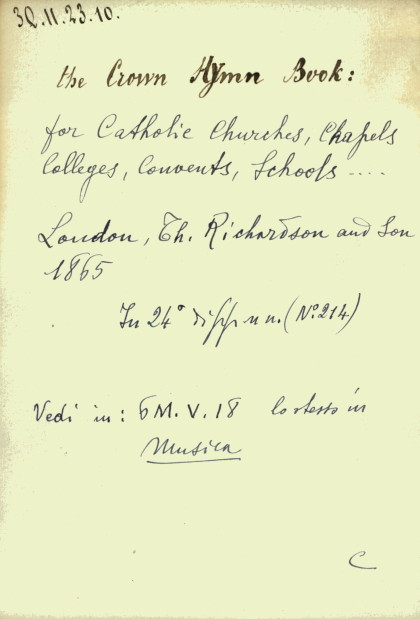 3Q.11.23.10.
the Crown Hymn Book:
for Catholic Churches, Chapels
Colleges, Convents, Schools ....
London, Th. Richardson and Son
1865
In 24° (N° 214)
Vedi in: 6 M. V. 18 lo stesso in
Musica
C